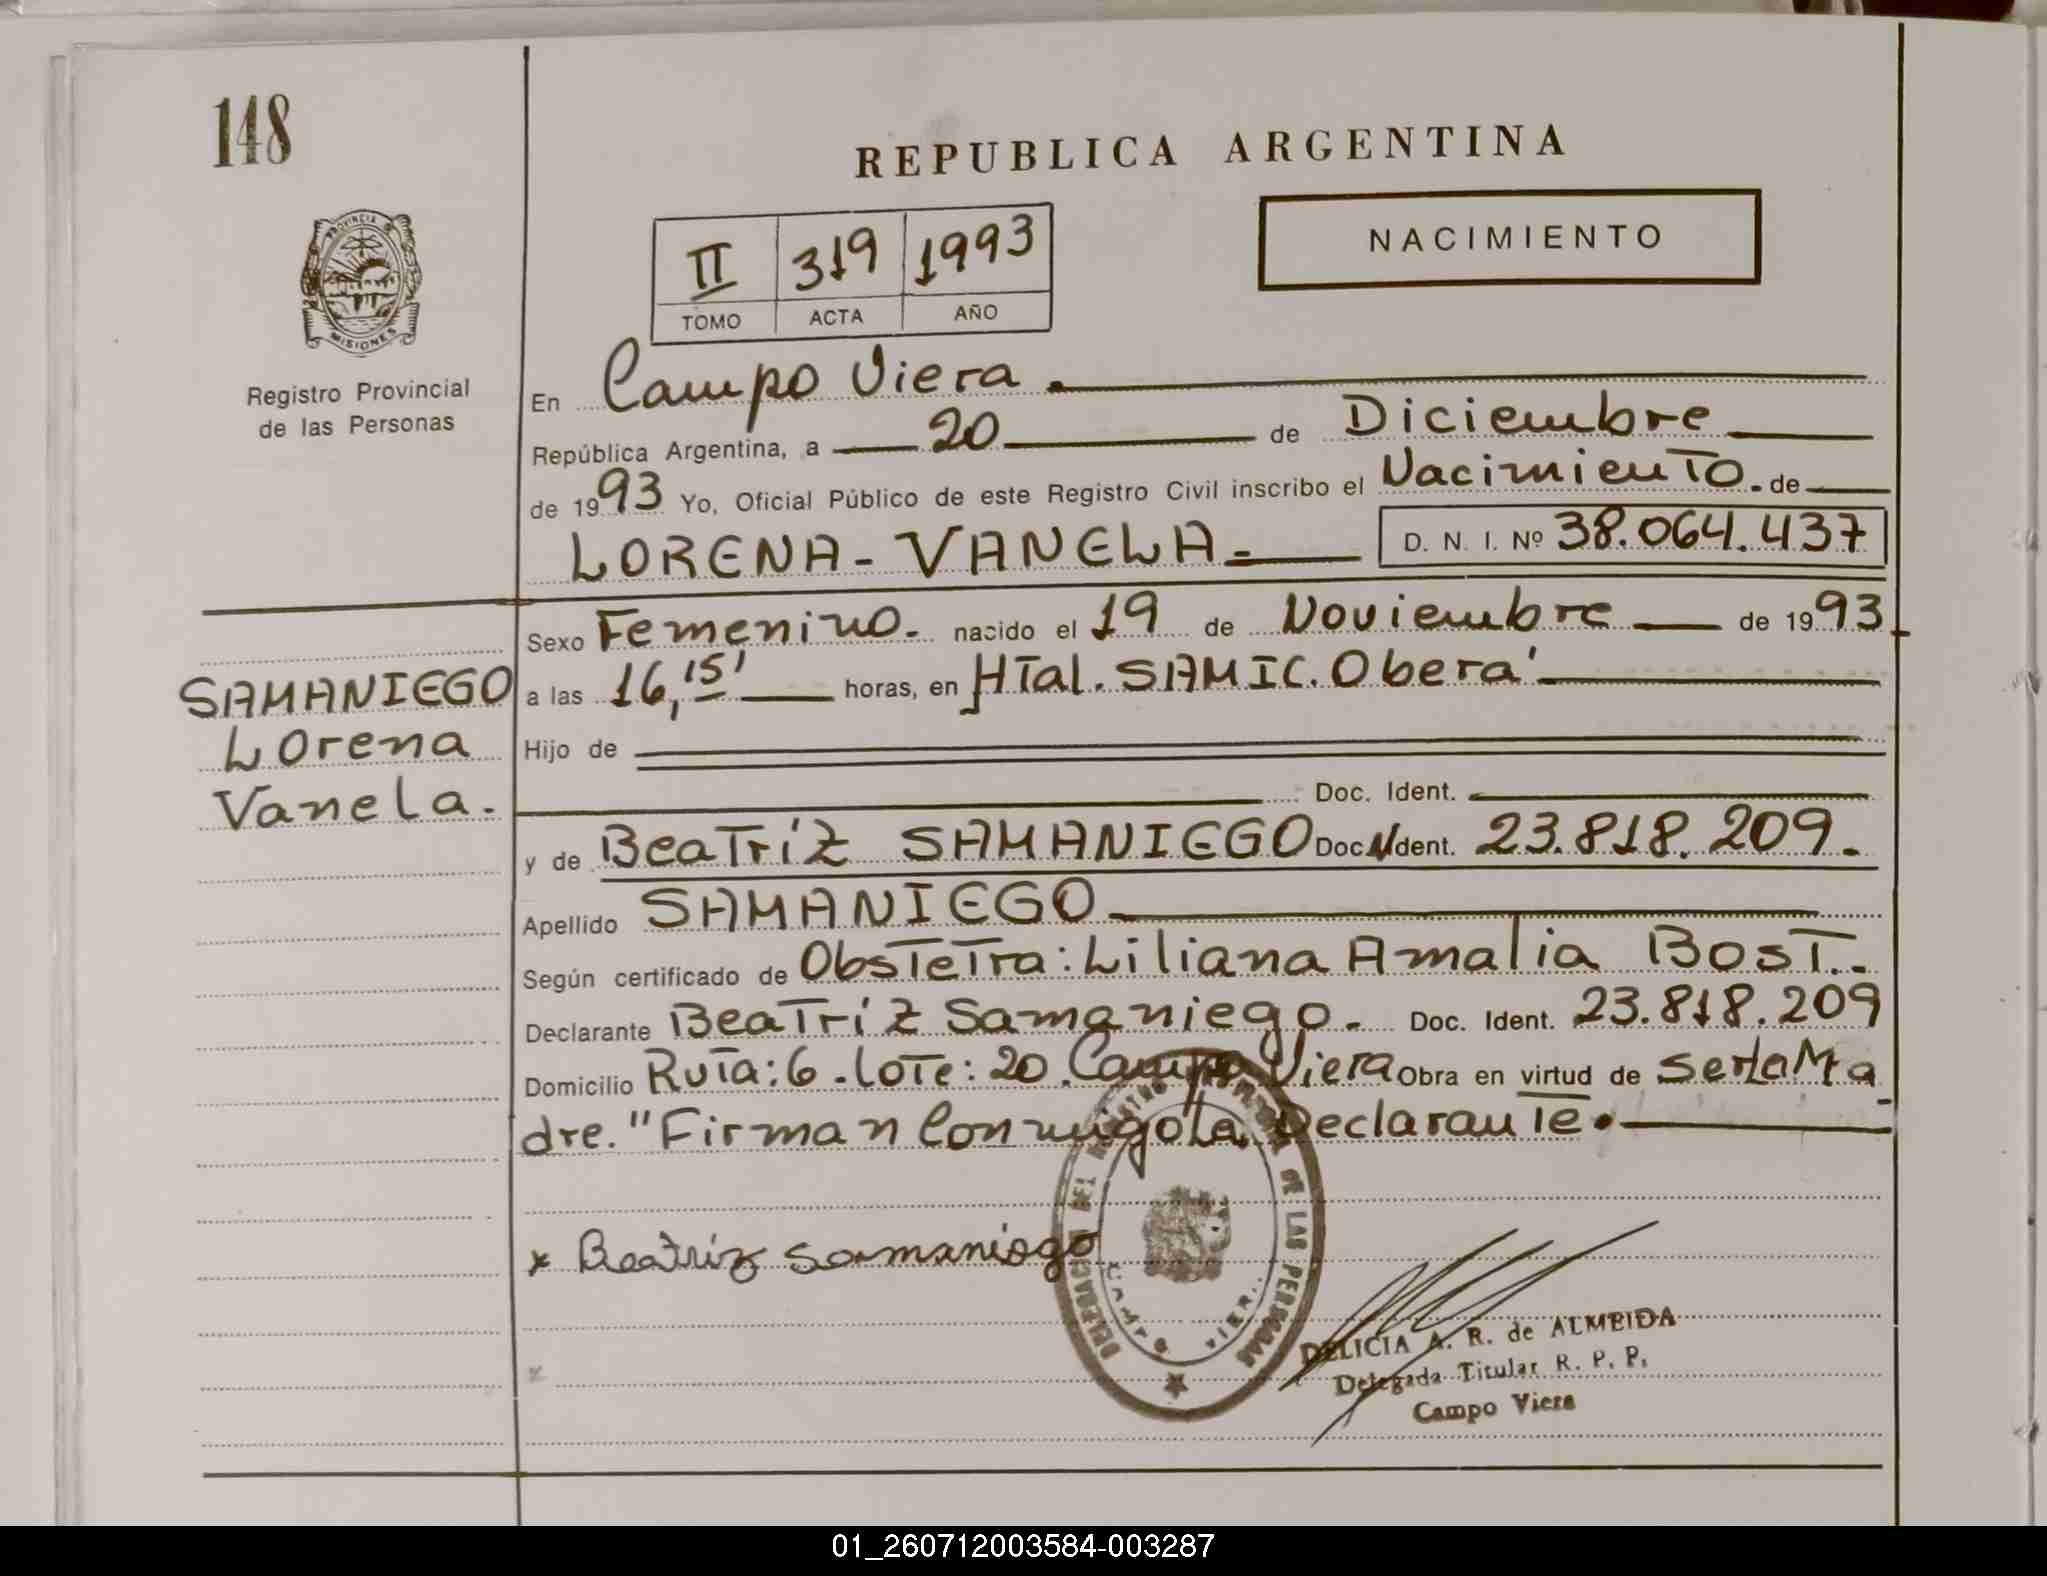 148
REPUBLICA ARGENTINA
PROVINCIA
MISIONES
Registro Provincial
de las Personas
II 319 1993
TOMO ACTA AÑO
NACIMIENTO
En Campo Viera.
República Argentina, a 20 de Diciembre
de 1993 Yo, Oficial Público de este Registro Civil inscribo el Nacimiento. de
LORENA - VANELA =
D. N. I. Nº 38.064.437
Sexo Femenino. nacido el 19 de Noviembre de 1993
a las 16,15' horas, en Htal. SAMIC. Oberá
Hijo de
Doc. Ident.
y de Beatríz SAMANIEGO Doc. Ident. 23.818.209.
Apellido SAMANIEGO
Según certificado de Obstetra: Liliana Amalia Bost.
Declarante Beatríz Samaniego. Doc. Ident. 23.818.209
Domicilio Ruta: 6. lote: 20. Campo Viera Obra en virtud de ser la Ma
dre. "Firman Conmigo la Declarante.
SAMANIEGO
Lorena
Vanela.
x Beatriz Samaniego
DELEGACION DEL REGISTRO DE LAS PERSONAS
CAMPO VIERA
DELICIA A. R. de ALMEIDA
Delegada Titular R. P. P.
Campo Viera
01_260712003584-003287